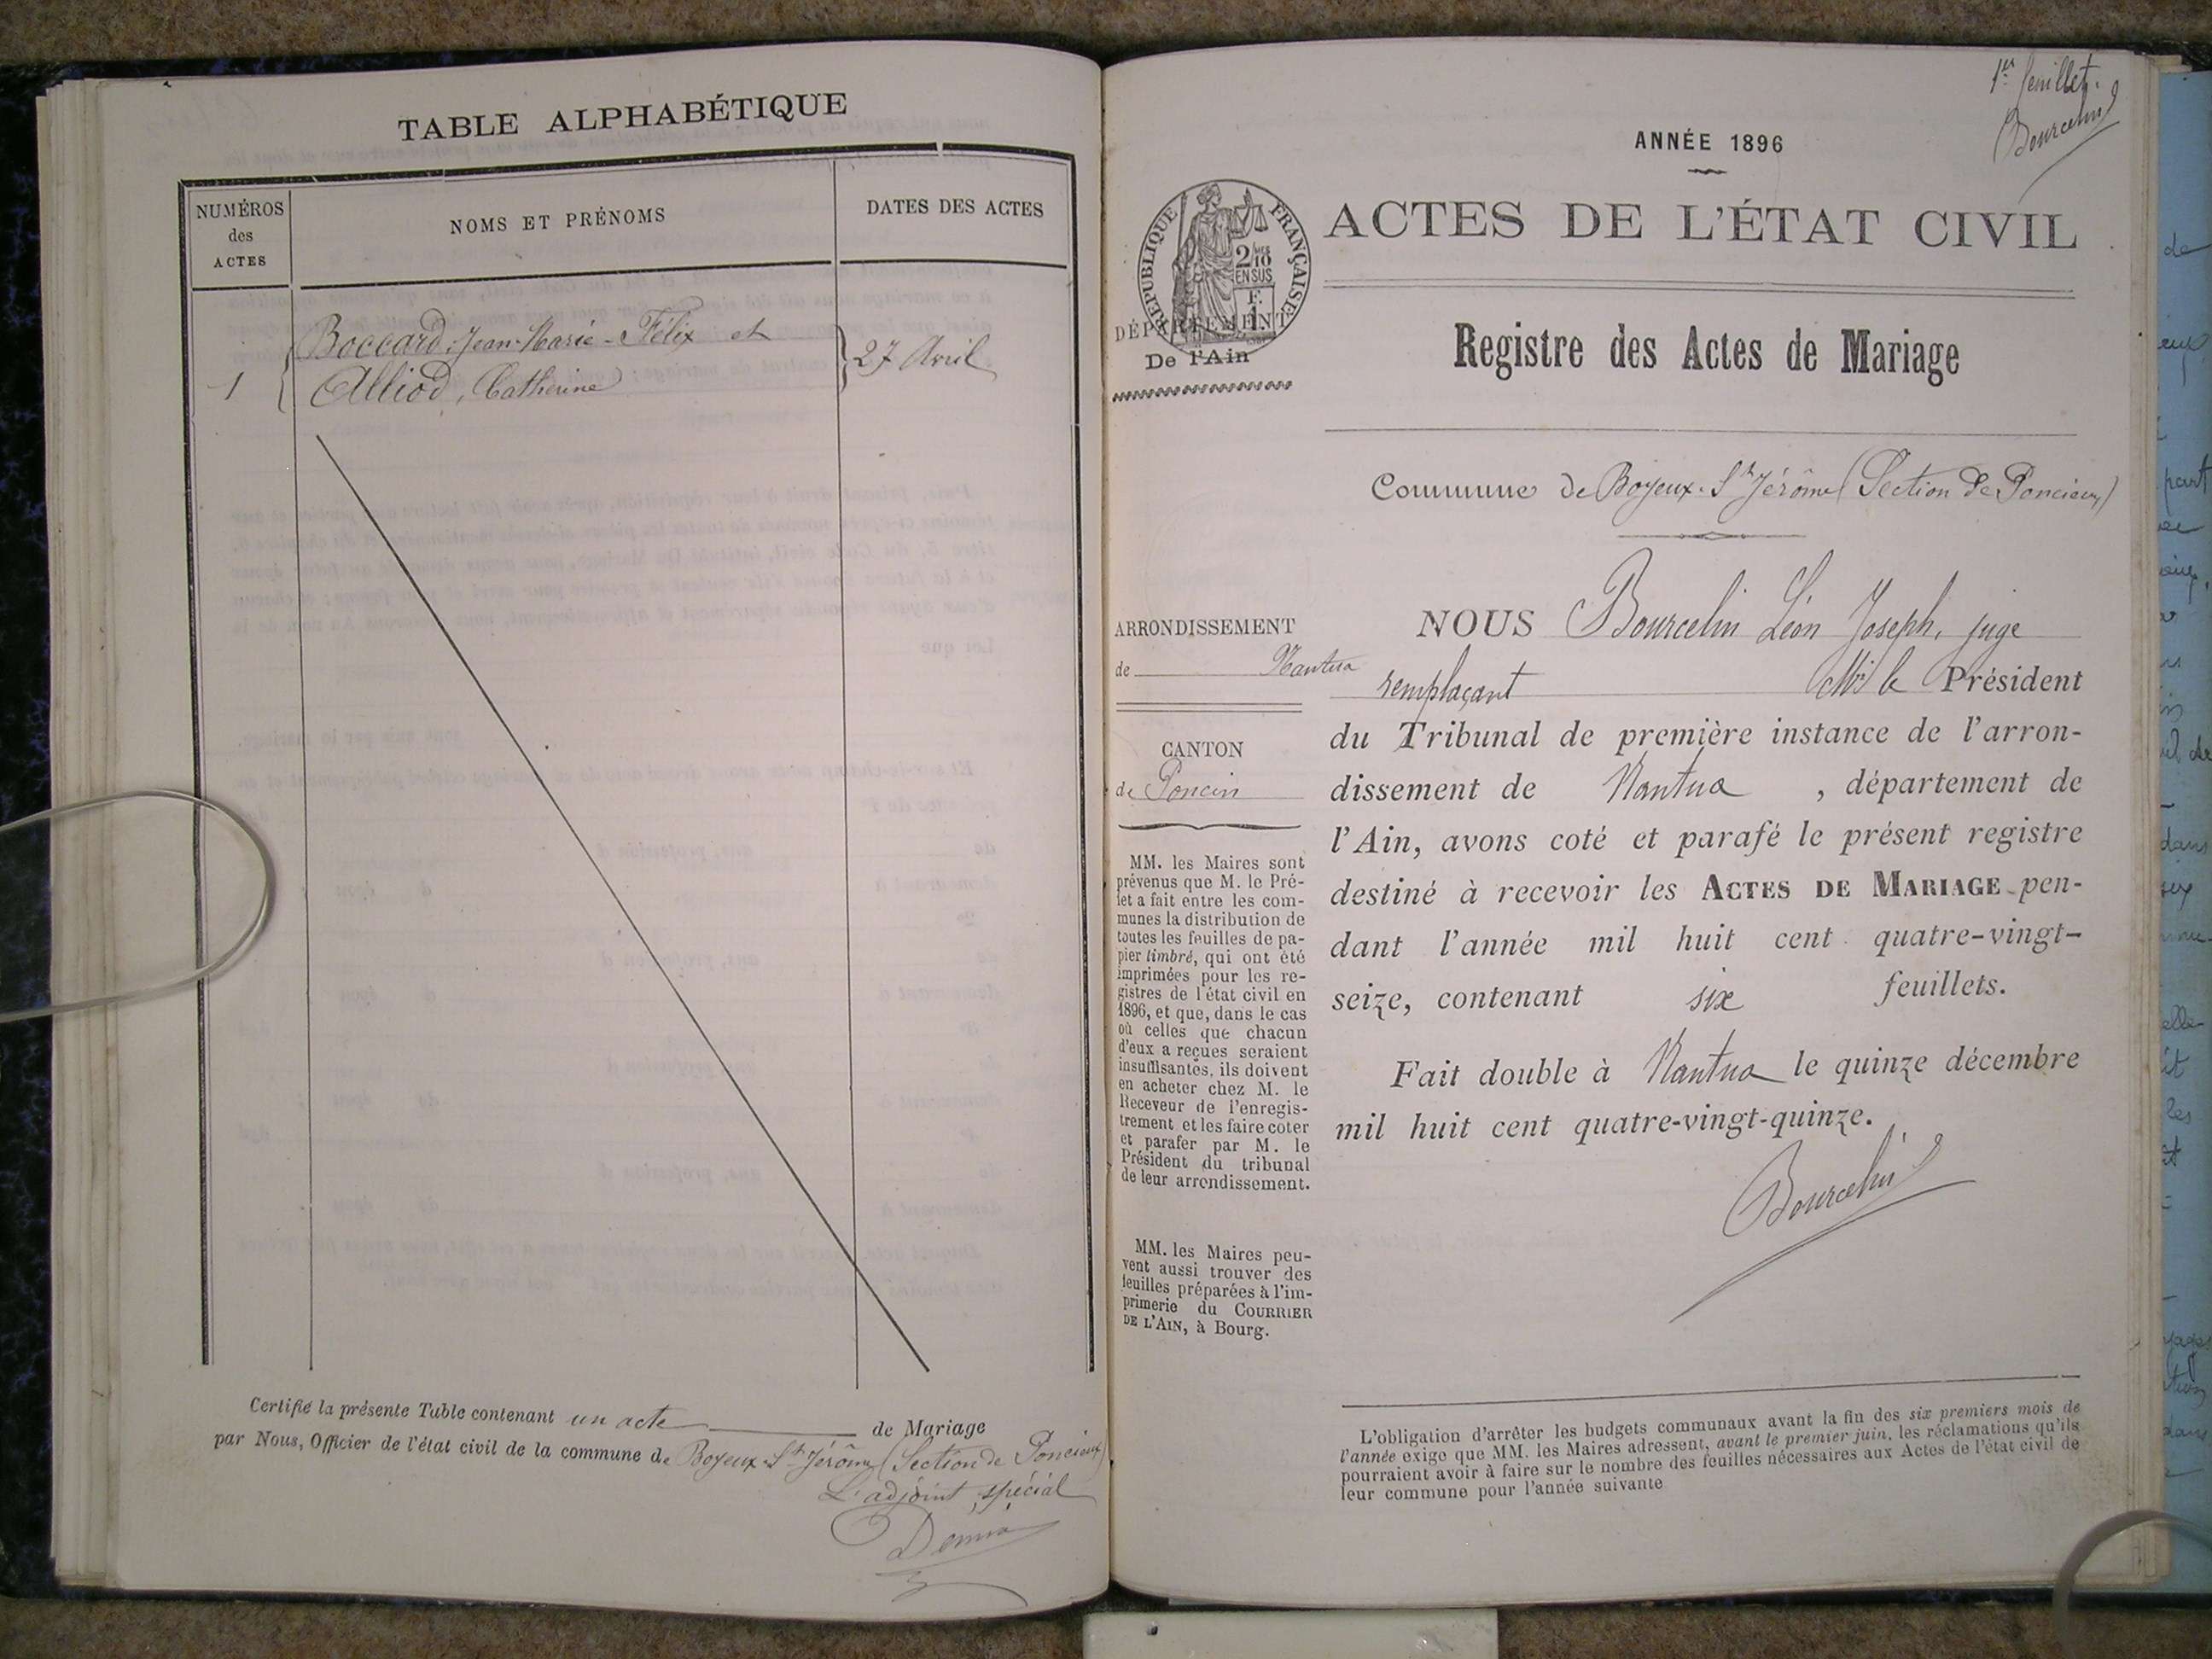 TABLE ALPHABÉTIQUE
NUMÉROS
des
ACTES
NOMS ET PRÉNOMS
DATES DES ACTES
1
Boccard, Jean-Marie-Félix et
Alliod, Catherine
27 Avril
Certifié la présente Table contenant un acte de Mariage
par Nous, Officier de l'état civil de la commune de Boyeux-St Jérôme (Section de Poncieux)
L'adjoint spécial
1er feuillet.
Bourcelin
ANNÉE 1896
RÉPUBLIQUE FRANÇAISE
2/10
EN SUS
ACTES DE L'ÉTAT CIVIL
DÉPARTEMENT
De l'Ain
Registre des Actes de Mariage
Commune de Boyeux-St Jérôme (Section de Poncieux)
ARRONDISSEMENT
de Nantua
CANTON
de Poncin
MM. les Maires sont
prévenus que M. le Pré-
fet a fait entre les com-
munes la distribution de
toutes les feuilles de pa-
pier timbré, qui ont été
imprimées pour les re-
gistres de l'état civil en
1896, et que, dans le cas
où celles que chacun
d'eux a reçues seraient
insuffisantes, ils doivent
en acheter chez M. le
Receveur de l'enregis-
trement et les faire coter
et parafer par M. le
Président du tribunal
de leur arrondissement.
MM. les Maires peu-
vent aussi trouver des
feuilles préparées à l'im-
primerie du COURRIER
DE L'AIN, à Bourg.
NOUS Bourcelin Léon Joseph, juge
remplaçant Mr le Président
du Tribunal de première instance de l'arron-
dissement de Nantua, département de
l'Ain, avons coté et parafé le présent registre
destiné à recevoir les ACTES DE MARIAGE pen-
dant l'année mil huit cent quatre-vingt-
seize, contenant six feuillets.
Fait double à Nantua le quinze décembre
mil huit cent quatre-vingt-quinze.
Bourcelin
L'obligation d'arrêter les budgets communaux avant la fin des six premiers mois de
l'année exige que MM. les Maires adressent, avant le premier juin, les réclamations qu'ils
pourraient avoir à faire sur le nombre des feuilles nécessaires aux Actes de l'état civil de
leur commune pour l'année suivante